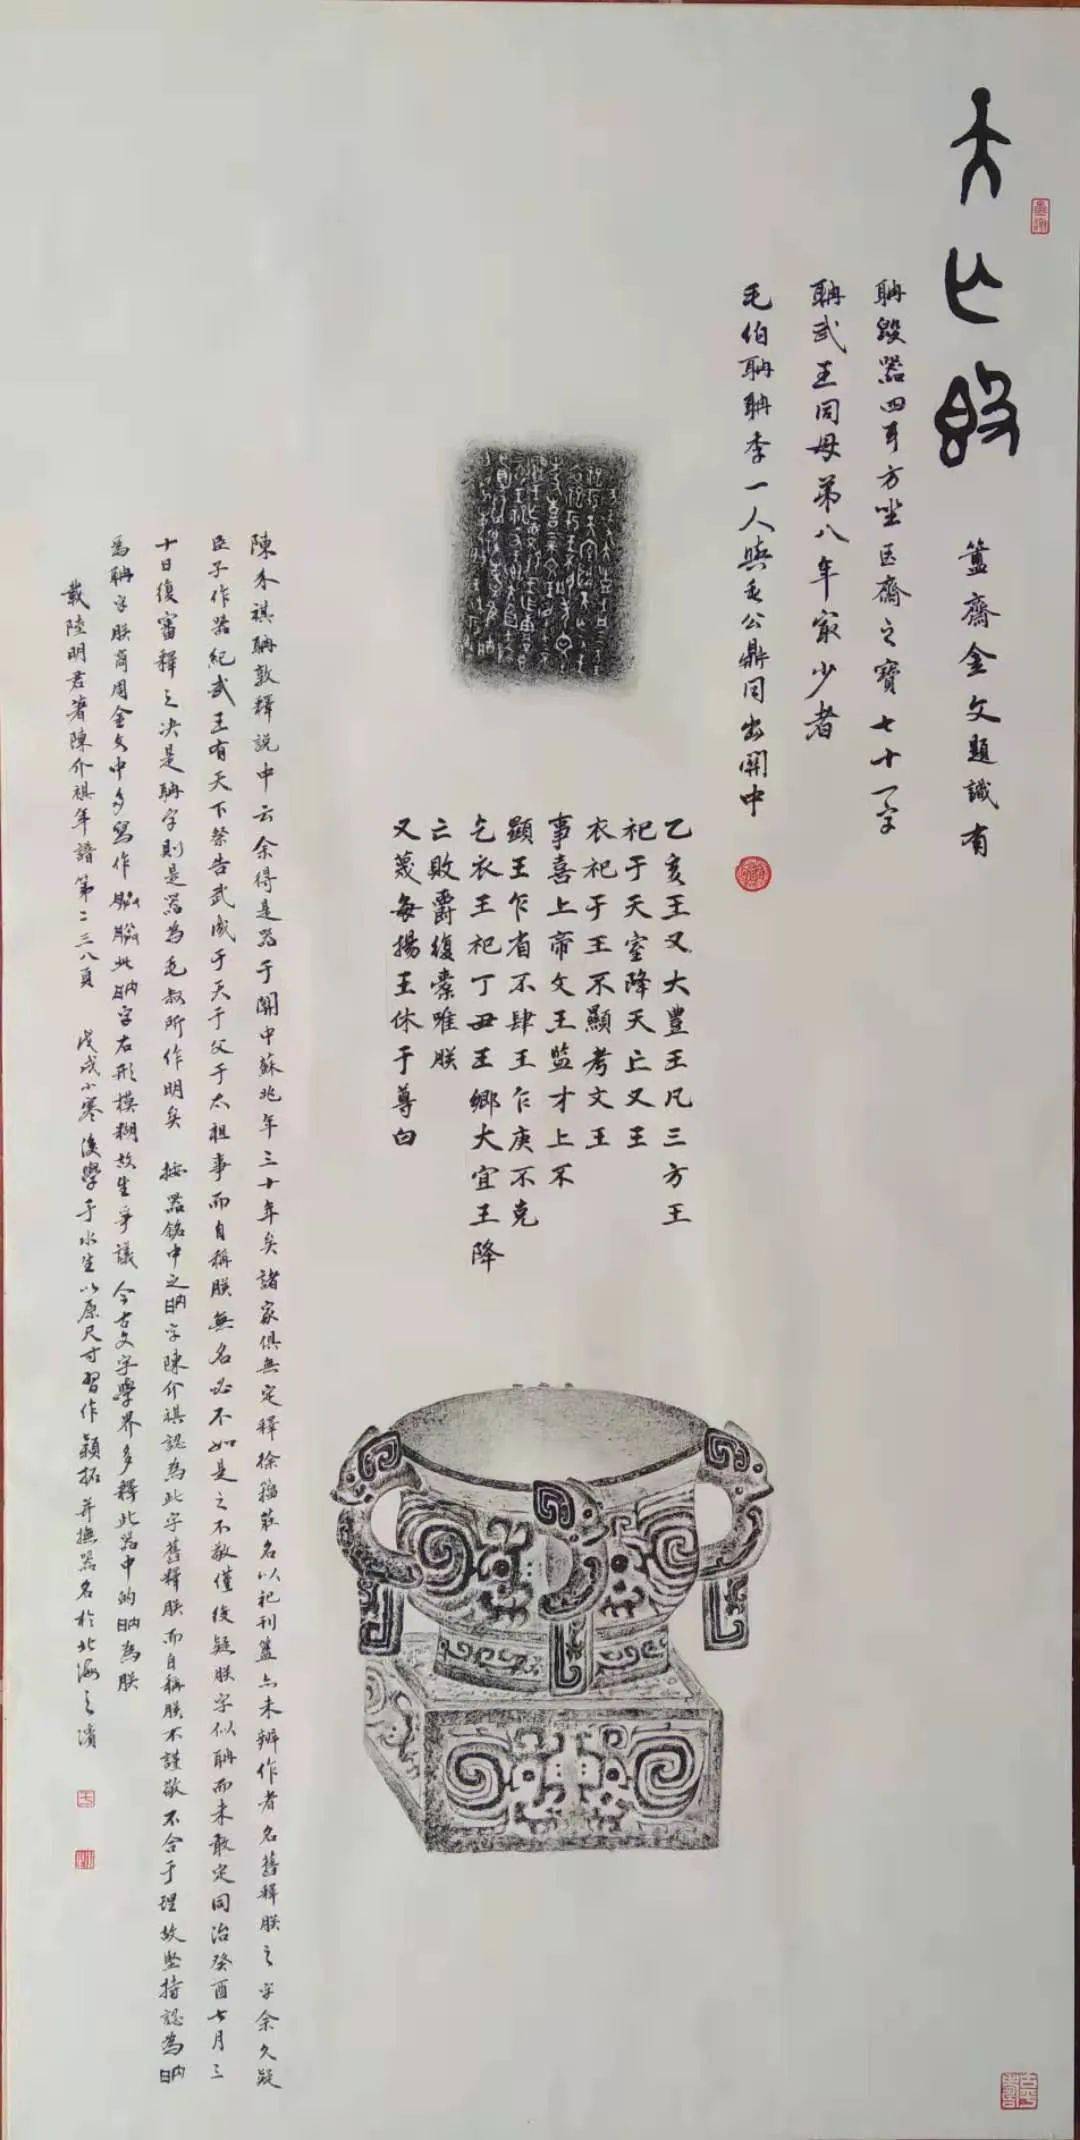 天亡𣪘
簠齋金文題識有
聃毀器四耳方坐民齋之寶七十一字
聃武王同母弟八年㝡少者
毛伯聃聃季一人與毛公鼎同出關中
乙亥王又大豐王凡三方王
祀于天室降天亡又王
衣祀于王不顯考文王
事喜上帝文王監才上不
顯王乍省不肆王乍庚不克
乞衣王祀丁丑王鄉大宜王降
亡敗爵復橐唯朕
又蔑每揚王休于尊白
陳介祺聃敦釋說中云余得是器于關中蘇兆年三十年矣諸家俱無定釋徐籀莊名以祀刊簠亦未辨作者名舊釋朕之字余久疑
臣子作器紀武王有天下祭告武成于天于父于太祖事而自稱朕無名必不如是之不敬僅後疑朕字似聃而未敢定同治癸酉七月三
十日復審釋之決是聃字則是器為毛叔所作明矣 按器銘中之𦨶字陳介祺認為此字舊釋朕而自稱朕不謹敬不合于理故堅持認為𦨶
為聃字朕商周金文中多寫作 此 字右形模糊故生爭議今古文字學界多釋此器中的 為朕
載陸明君著陳介祺年譜第二三八頁 戊戌小寒後學于水生以原尺寸習作穎拓并撫器名於北海之濱